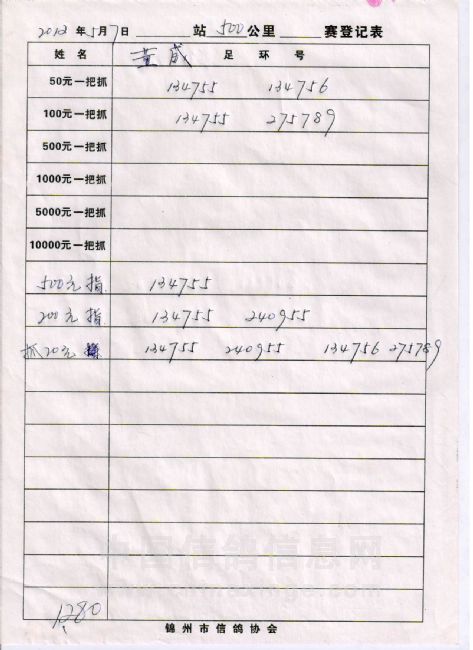 2012年5月7日______站 500公里______赛登记表
姓名 董威 足环号
50元一把抓 134755 134756
100元一把抓 134755 275789
500元一把抓
1000元一把抓
5000元一把抓
10000元一把抓
500元指 134755
200元指 134755 240955
抓20元 134755 240955 134756 275789
中国信鸽信息网
1280
锦州市信鸽协会